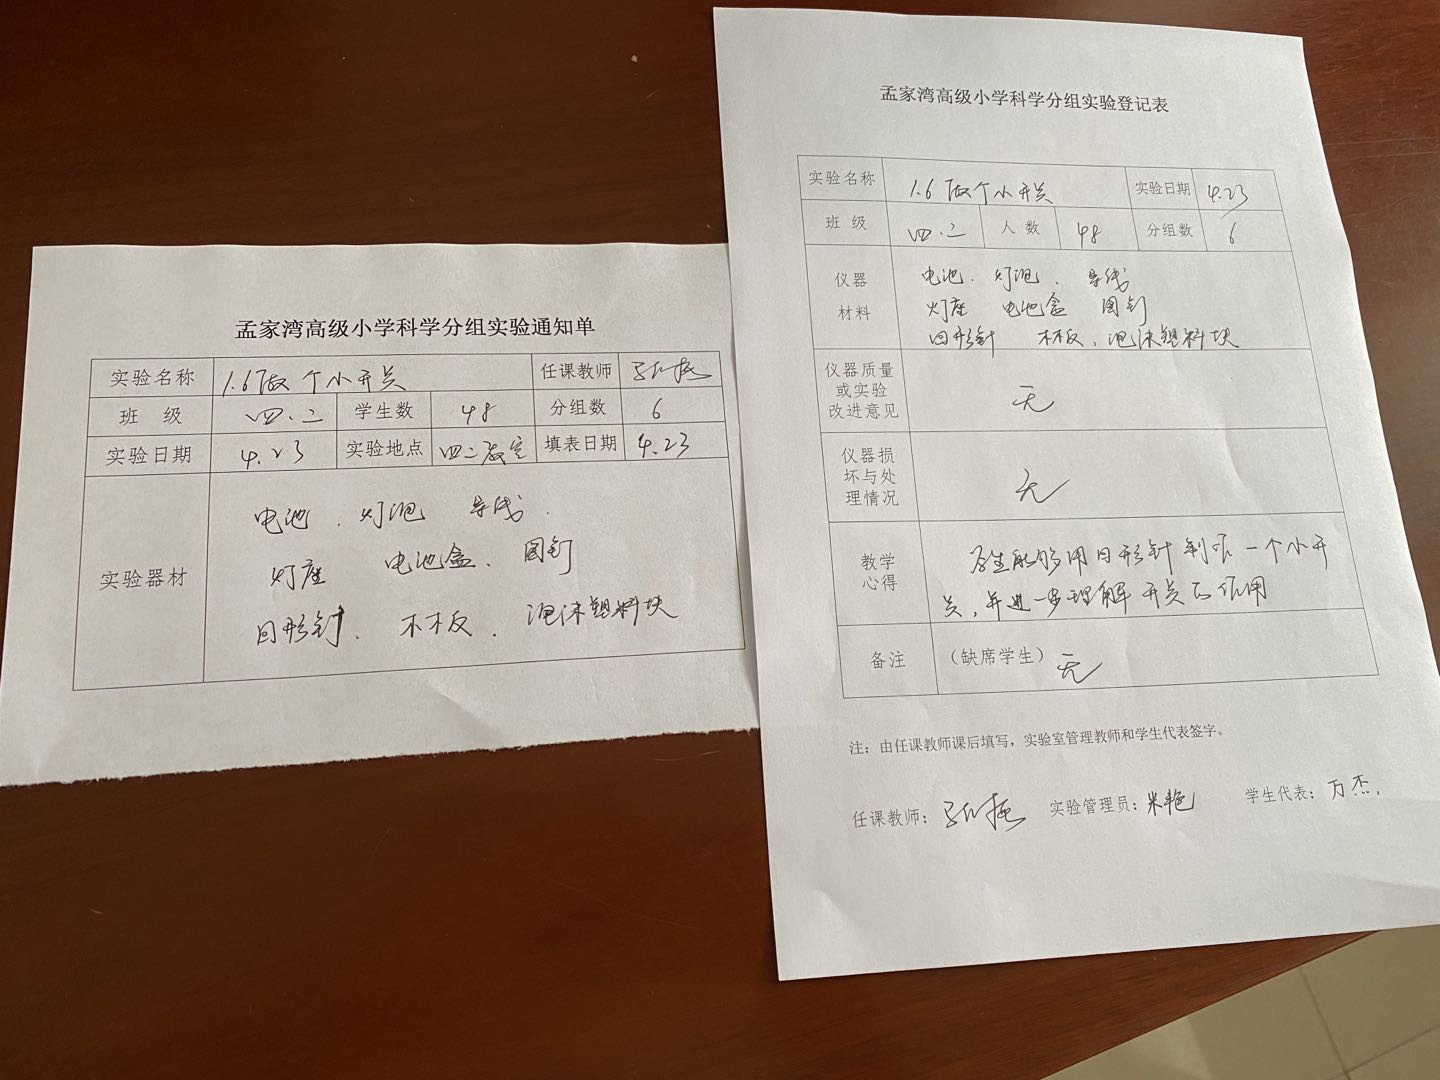 孟家湾高级小学科学分组实验通知单
实验名称 1.6做个小开关 任课教师
班 级 四.二 学生数 48 分组数 6
实验日期 4.23 实验地点 四二教室 填表日期 4.23
实验器材
电池、灯泡 导线、
灯座 电池盒、图钉
回形针、木板、泡沫塑料块
孟家湾高级小学科学分组实验登记表
实验名称 1.6做个小开关 实验日期 4.23
班 级 四.二 人 数 48 分组数 6
仪器
材料
电池、灯泡、导线
灯座 电池盒 图钉
回形针 木板、泡沫塑料块
仪器质量
或实验
改进意见
无
仪器损
坏与处
理情况
无
教学
心得
学生能够用回形针制作一个小开
关,并进一步理解开关的作用
备注 (缺席学生) 无
注:由任课教师课后填写,实验室管理教师和学生代表签字。
任课教师: 实验管理员:米艳 学生代表:万杰.